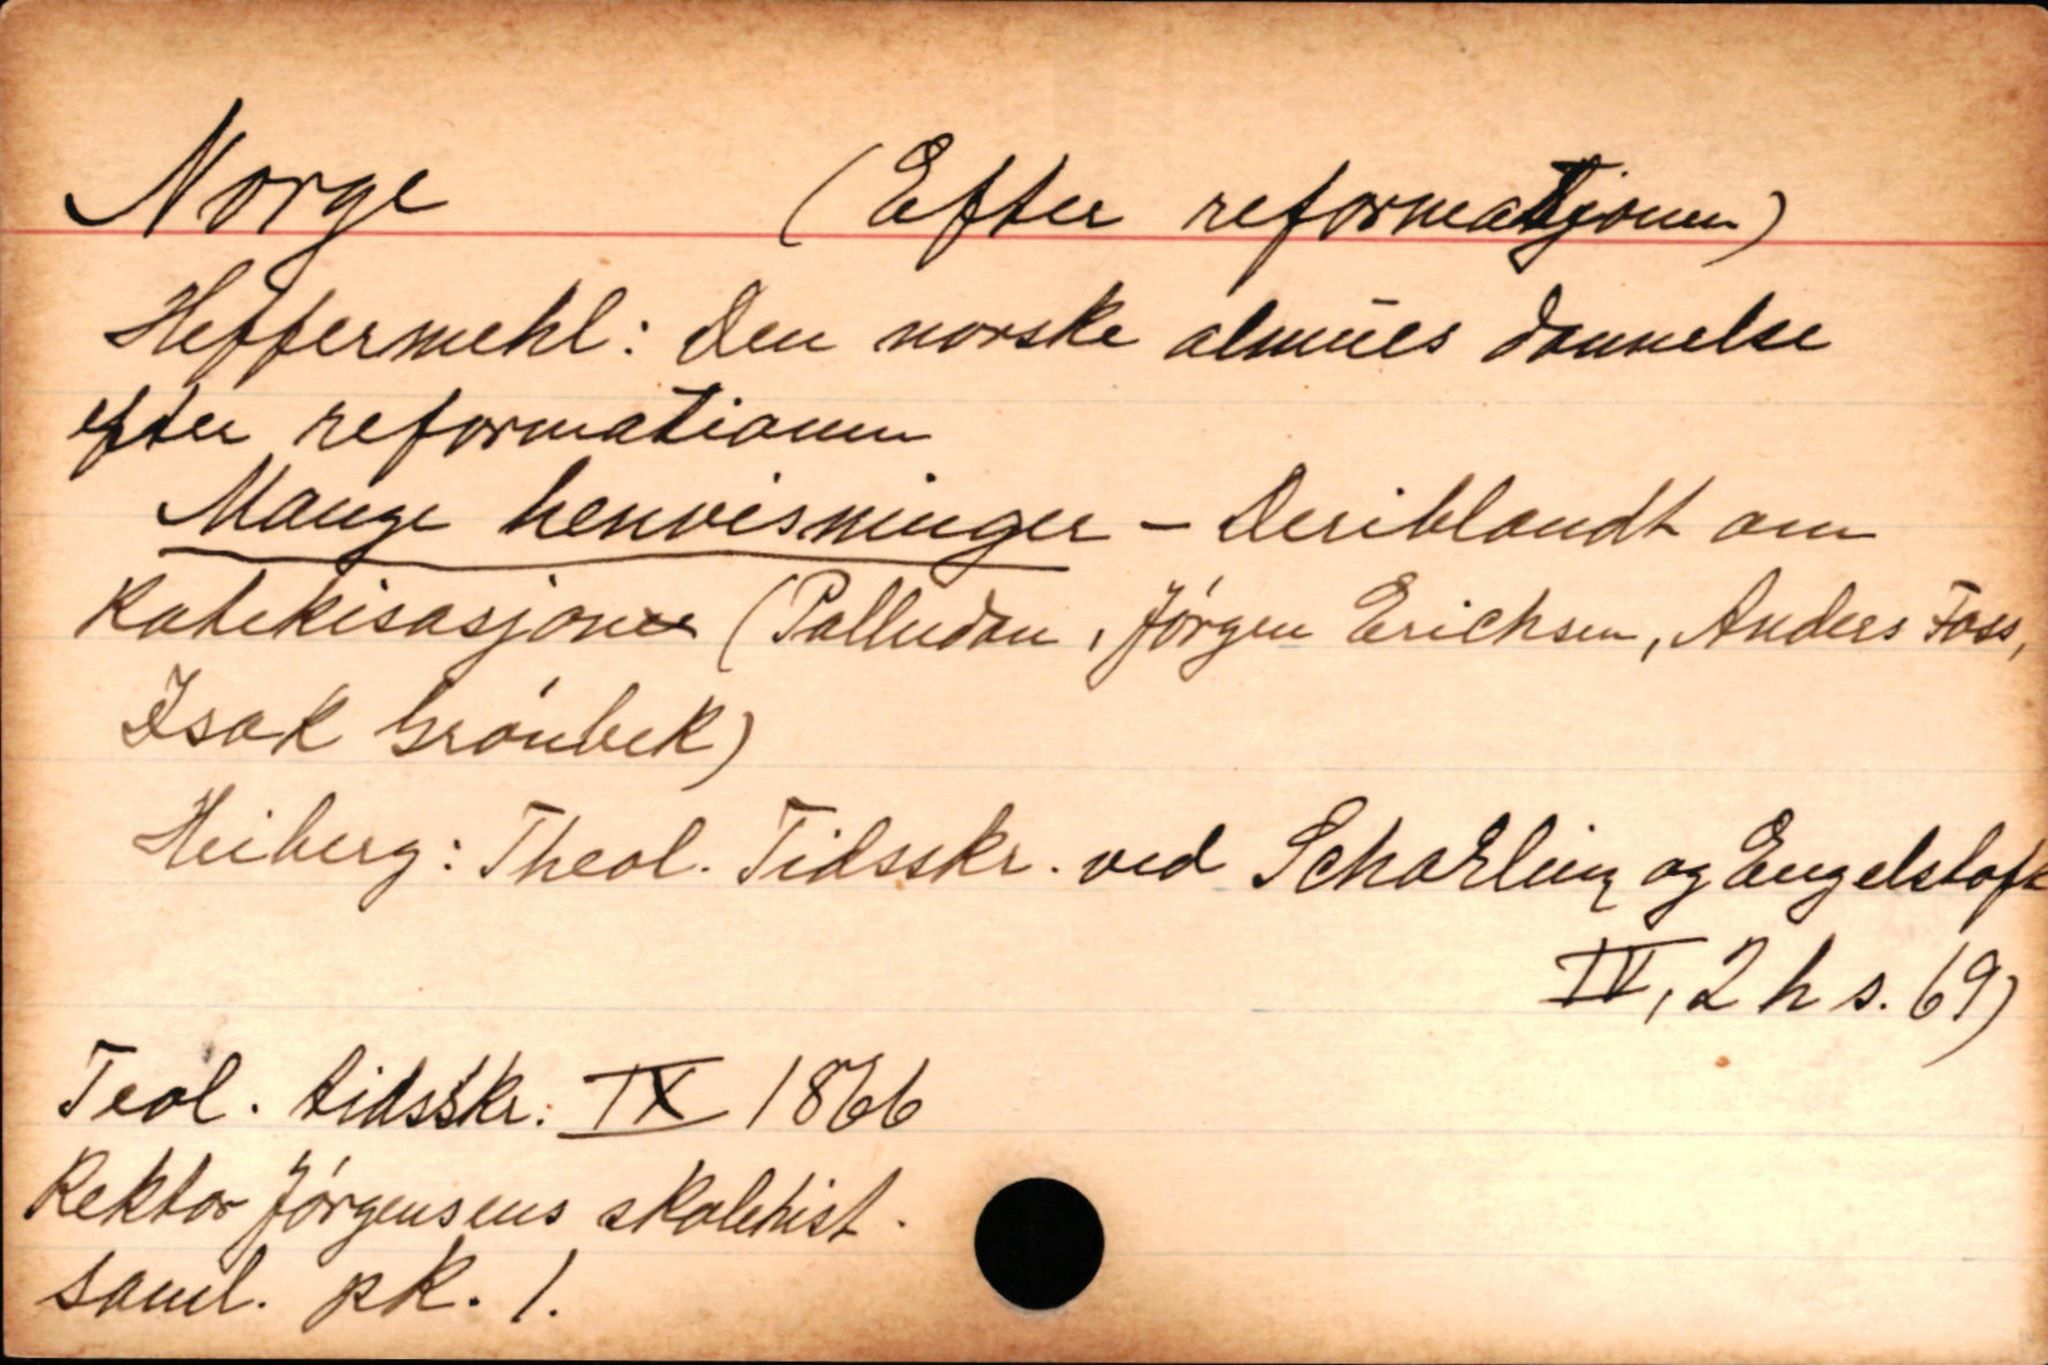 Norge (Efter reformatjonen)
Heffermehl: Den norske almues dannelse
efter reformationen
Mange henvisninger - Deriblandt om
Katekisasjonen (Palludan, Jörgen Erichsen, Anders Foss,
Isak Grönbek)
Heiberg: Theol. Tidsskr. ved Scharling og Engelstoft
IV, 2 h s. 69)
Teol. tidsskr. IX 1866
Rektor Jörgensens skolehist.
saml. pk. 1.